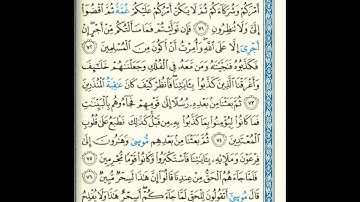 أَمْرَكُمْ وَشُرَكَآءَكُمْ ثُمَّ لَا يَكُنْ أَمْرُكُمْ عَلَيْكُمْ غُمَّةً ثُمَّ ٱقْضُوٓا۟
إِلَىَّ وَلَا تُنظِرُونِ ٧١ فَإِن تَوَلَّيْتُمْ فَمَا سَأَلْتُكُم مِّنْ أَجْرٍ إِنْ
أَجْرِىَ إِلَّا عَلَى ٱللَّهِ وَأُمِرْتُ أَنْ أَكُونَ مِنَ ٱلْمُسْلِمِينَ ٧٢
فَكَذَّبُوهُ فَنَجَّيْنَٰهُ وَمَن مَّعَهُۥ فِى ٱلْفُلْكِ وَجَعَلْنَٰهُمْ خَلَٰٓئِفَ
وَأَغْرَقْنَا ٱلَّذِينَ كَذَّبُوا۟ بِـَٔايَٰتِنَا فَٱنظُرْ كَيْفَ كَانَ عَٰقِبَةُ ٱلْمُنذَرِينَ
٧٣ ثُمَّ بَعَثْنَا مِنۢ بَعْدِهِۦ رُسُلًا إِلَىٰ قَوْمِهِمْ فَجَآءُوهُم بِٱلْبَيِّنَٰتِ
فَمَا كَانُوا۟ لِيُؤْمِنُوا۟ بِمَا كَذَّبُوا۟ بِهِۦ مِن قَبْلُ كَذَٰلِكَ نَطْبَعُ عَلَىٰ قُلُوبِ
ٱلْمُعْتَدِينَ ٧٤ ثُمَّ بَعَثْنَا مِنۢ بَعْدِهِم مُّوسَىٰ وَهَٰرُونَ إِلَىٰ
فِرْعَوْنَ وَمَلَإِي۟هِۦ بِـَٔايَٰتِنَا فَٱسْتَكْبَرُوا۟ وَكَانُوا۟ قَوْمًا مُّجْرِمِينَ ٧٥
فَلَمَّا جَآءَهُمُ ٱلْحَقُّ مِنْ عِندِنَا قَالُوٓا۟ إِنَّ هَٰذَا لَسِحْرٌ مُّبِينٌ ٧٦
قَالَ مُوسَىٰٓ أَتَقُولُونَ لِلْحَقِّ لَمَّا جَآءَكُمْ أَسِحْرٌ هَٰذَا وَلَا يُفْلِحُ